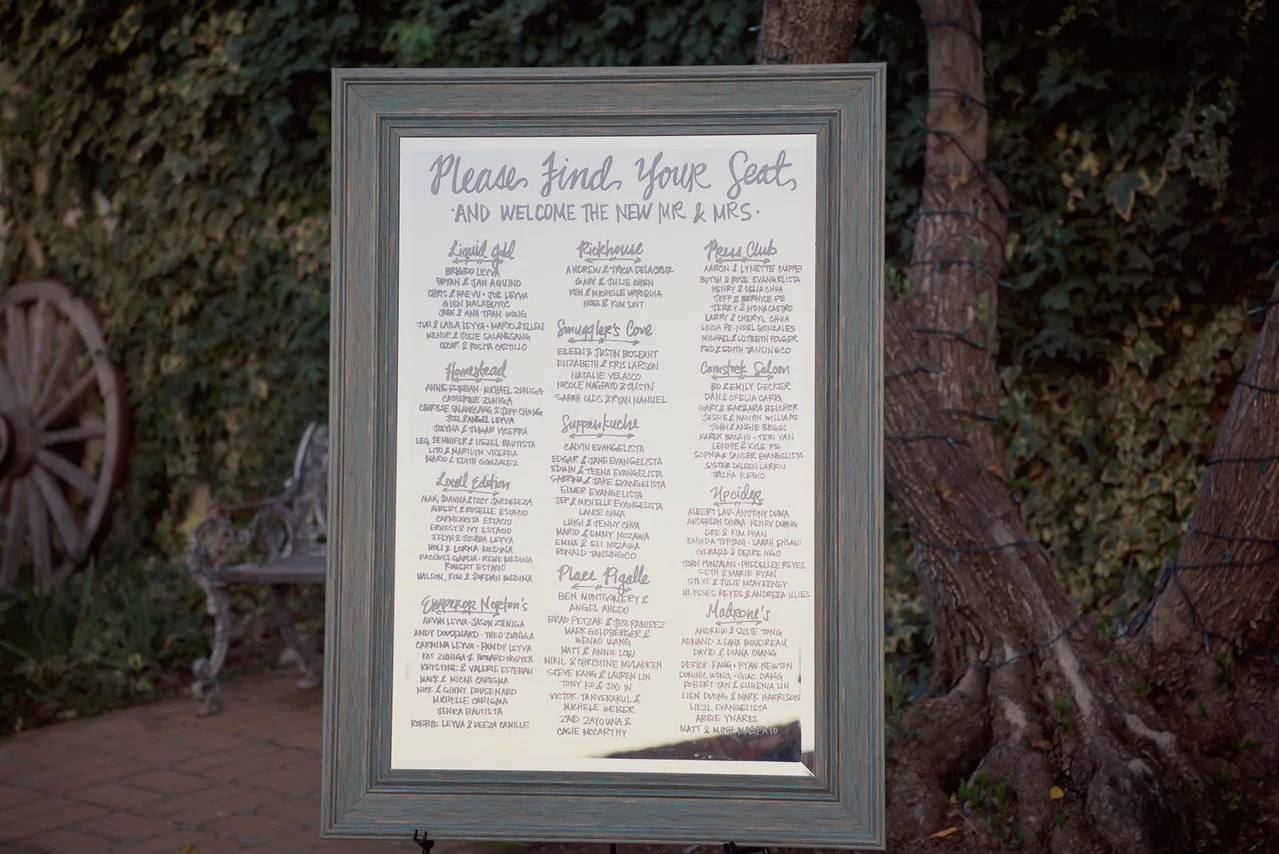 Please Find Your Seat
·AND WELCOME THE NEW MR & MRS·
Liquid Gold
BRIGIDO LEYVA
BRYAN & JAN AQUINO
CHRIS & PAEVU · JOE LEYVA
GLEN MALABUYOC
JOHN & ANH TRAN WONG
JUN & LAILA LEYVA · MARIO & ELLEN
MENOR & JOSIE SALANGSANG
OSCAR & ROSITA CASTILLO
Homestead
ANNIE ESTEBAN · MICHAEL ZUNIGA
CATHERINE ZUNIGA
CHARISE SALANGSANG & JEFF CHANG
JOEL & ANGEL LEYVA
JOLYNA & JOMAR VICERRA
LEO, JENNIFER & LIEZEL BAUTISTA
LITO & MARILYN VICERRA
MARIO & EDITH GONZALEZ
Local Edition
ALAN, JOANNA & IZZY JARDELEZA
ALBERT & ROSELLE ESTACIO
CARMENCITA ESTACIO
ERNEST & IVY ESTACIO
JELYN & JOSHUA LEYVA
NOLI & LORNA MEDINA
RACQUEL GARCIA · IRENE MEDINA
ROBERT ESTACIO
WILSON, KIM & JORDAN MEDINA
Emperor Norton's
ARVIN LEYVA · JASON ZUNIGA
ANDY DOUSENARD · THEO ZUNIGA
CARMINA LEYVA · RANDY LEYVA
KAT ZUNIGA & HOWARD NGUYEN
KRISTINE & VALERIE ESTEBAN
MARK & MICAH CARIGMA
NICK & GINNY DOUSENARD
MICHELLE CARIGMA
JERICA BAUTISTA
ROBBIE LEYVA & DEEZA CAMILLE
Rickhouse
ANDREW & TRICIA DELACRUZ
GARY & JULIE CHEN
KEN & MICHELLE URRIQUIA
NOEL & KIM SUIT
Smuggler's Cove
EILEEN & JUSTIN BOSEANT
ELIZABETH & KRIS LARSON
NATALIE VELASCO
NICOLE MAGPAYO & JUSTIN
SARAH OLDS & RYAN MANUEL
Suppenkuche
CALVIN EVANGELISTA
EDGAR & JANE EVANGELISTA
EDWIN & TEENA EVANGELISTA
SABRINA & JAKE EVANGELISTA
ELMER EVANGELISTA
JEP & MICHELLE EVANGELISTA
LANCE CHUA
LUIGI & JENNY CHUA
MARIO & EMMY NOZAWA
EMMA & ELI NOZAWA
RONALD TANSINGCO
Place Pigalle
BEN MONTGOMERY &
ANGEL AHEDO
BRAD PETZAK & JESS RAMIREZ
MARK GOLDBERGER &
WENAO WANG
MATT & ANNIE LOW
NIKIL & CHRISTINE MULAKKEN
STEVE KANG & LAUREN LIN
TONY KO & JOO IN
VICTOR TANVERAKUL &
MICHELE WEBER
ZAID ZAYOUNA &
CASIE MCCARTHY
Press Club
AARON & LYNETTE MAFFEI
BUTCH & ROSE EVANGELISTA
HENRY & CELIA CHUA
JEFF & BERNICE PE
JERRY & MONA CASTRO
LARRY & CHERYL CHUA
LINDA PE · NOEL GONZALES
MICHAEL & LILYBETH FOLGER
RED & EDITH TANSINGCO
Comstock Saloon
BO & EMILY DECKER
DAN & OFELIA CARIG
GARY & BARBARA BELCHER
JESSIE & NANTIN WILLIAMS
JOHN & ANGIE BEGGS
KAREN BALANI · TERI YAN
LENNIE & KYLE PE
SOPHIA & SANDER EVANGELISTA
SISTER DALEEN LARKIN
TRISHA REGIO
Hecidor
ALBERT LAU · ANTHONY DUMA
ANDERSON DINHA · HENRY DUANG
DRE & KIM PHAN
ENIADA TOPSANI · SARAH EHSANI
GERARD & DEARE NGO
JOHN PUNZALAN · PHEDELLEE REYES
SETH & MARIE RYAN
STEVE & JULIE MCAWEENEY
ULYSSES REYES & ANDREEA ILLIES
Madrone's
ANDREW & SUSIE TONG
ARMAND & LARA BOUDREAU
DAVID & DIANA CHANG
DERICK KANG · RYAN NEWTON
DOMINIC WONG · GIAC DANG
ROBERT TAN & EUGENIA LIN
LIEN DUONG & MARK HARRISON
LIEZL EVANGELISTA
ABBIE YNARES
MATT & MINH